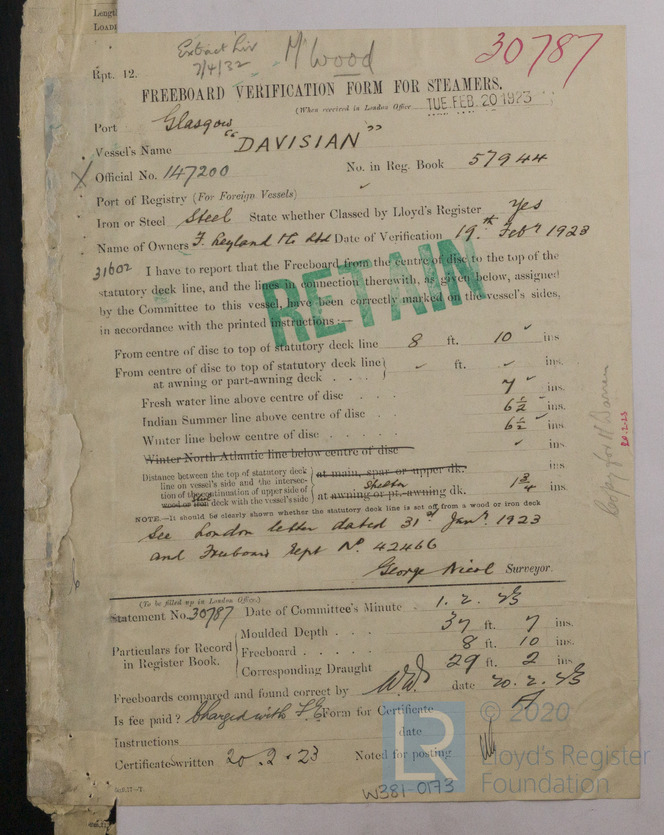 Length
Extract Liv
7/4/32
McWood
30787
Rpt. 12.
FREEBOARD VERIFICATION FORM FOR STEAMERS.
(When received in London Office TUE. FEB. 20 1923
Port Glasgow
Vessel's Name "DAVISIAN"
X Official No. 147200 No. in Reg. Book 57944
Port of Registry (For Foreign Vessels)
Iron or Steel Steel State whether Classed by Lloyd's Register Yes
Name of Owners F. Leyland & Co Ltd Date of Verification 19th Febr 1923
31602 I have to report that the Freeboard from the centre of disc to the top of the
statutory deck line, and the lines in connection therewith, as given below, assigned
by the Committee to this vessel, have been correctly marked on the vessel's sides,
in accordance with the printed instructions :—
RETAIN
From centre of disc to top of statutory deck line 8 ft. 10 ins
From centre of disc to top of statutory deck line
at awning or part-awning deck . . . . ft. ins.
Fresh water line above centre of disc . . . 7 ins.
Indian Summer line above centre of disc . . 6½ ins.
Winter line below centre of disc . . . 6½ ins
Winter North Atlantic line below centre of disc ins
Distance between the top of statutory deck
line on vessel's side and the intersec-
tion of the continuation of upper side of
wood or iron deck with the vessel's side
at main, spar or upper dk. ins
Shelter
at awning or pt. awning dk. 1¾ ins
NOTE.—It should be clearly shewn whether the statutory deck line is set off from a wood or iron deck
See London letter dated 31st Janr 1923
and Freeboard Rept No. 42466
George Nicol Surveyor.
20.2.23
(To be filled up in London Office.)
Statement No. 30787 Date of Committee's Minute 1. 2. 23
Particulars for Record
in Register Book.
Moulded Depth . . . 37 ft. 7 ins.
Freeboard . . . . . 8 ft. 10 ins.
Corresponding Draught 29 ft. 2 ins
Freeboards compared and found correct by date 20. 2. 23
Is fee paid? Charged with F.E. Form for Certificate
Instructions date
Certificate written 20.2.23 Noted for posting
W381-0173
LR
© 2020
Lloyd's Register
Foundation